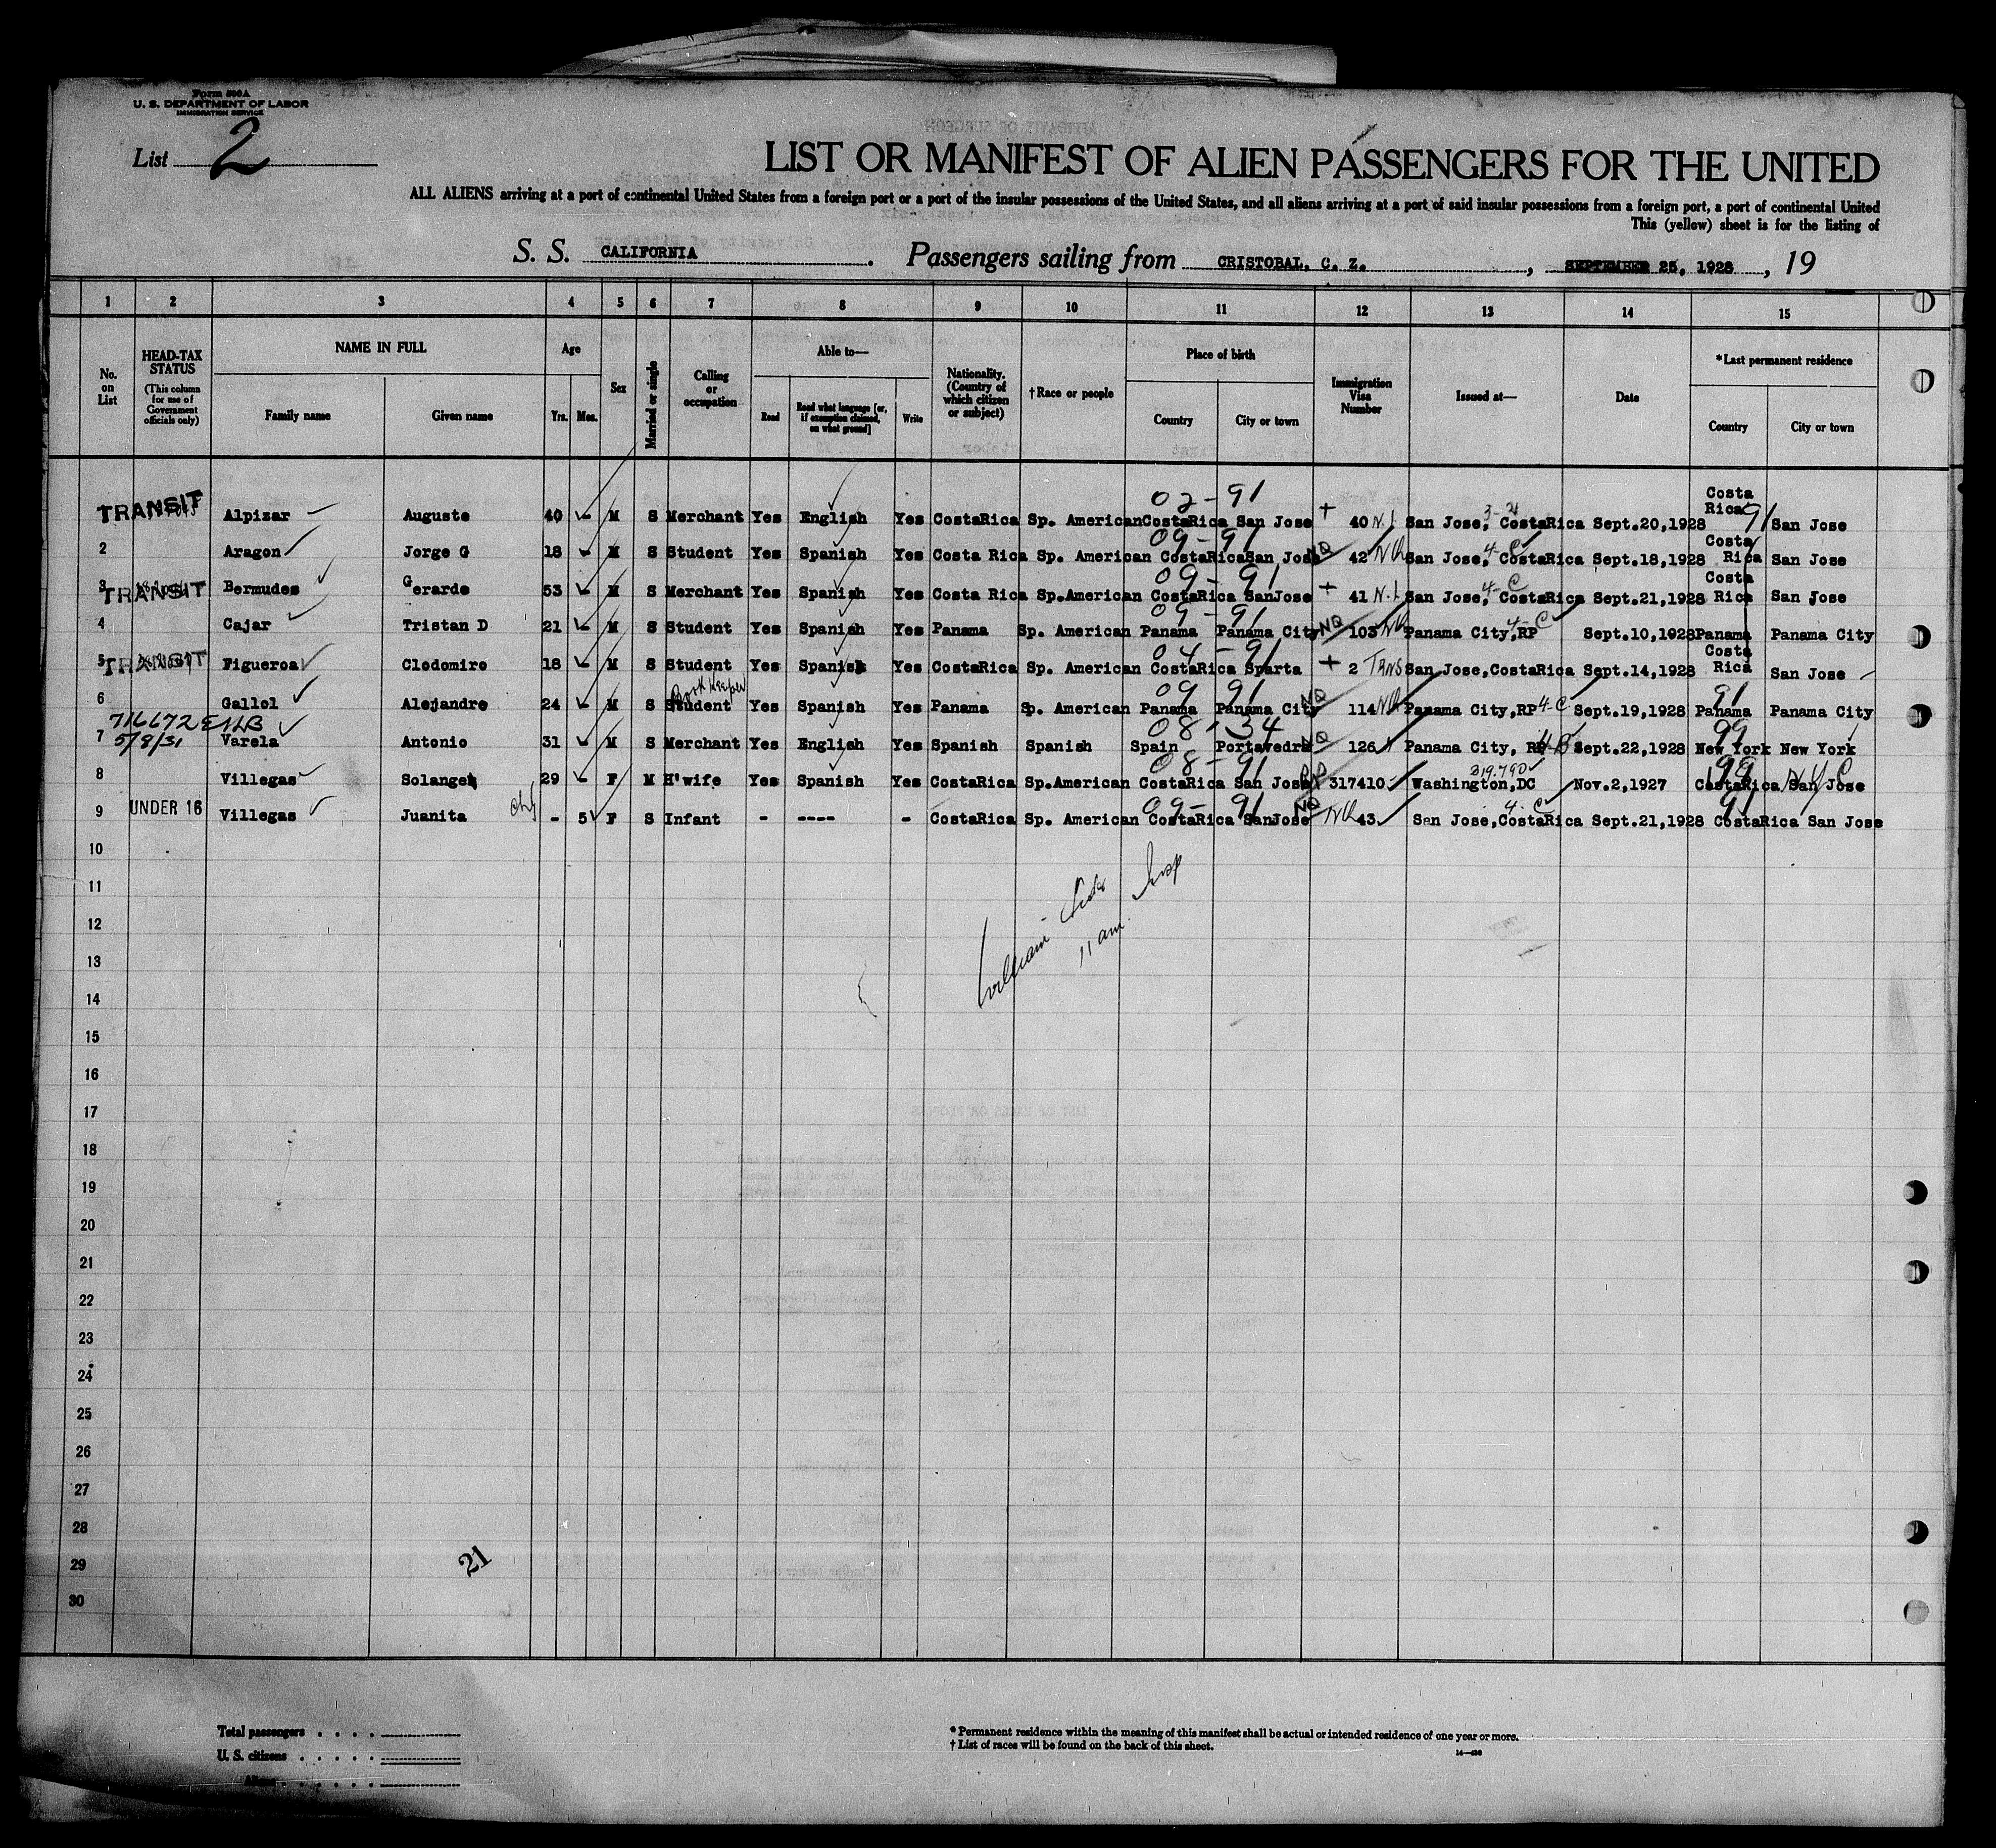 Form 500A
U. S. DEPARTMENT OF LABOR
IMMIGRATION SERVICE
List 2
LIST OR MANIFEST OF ALIEN PASSENGERS FOR THE UNITED
ALL ALIENS arriving at a port of continental United States from a foreign port or a port of the insular possessions of the United States, and all aliens arriving at a port of said insular possessions from a foreign port, a port of continental United
This (yellow) sheet is for the listing of
S. S. CALIFORNIA. Passengers sailing from CRISTOBAL, C. Z., SEPTEMBER 25, 1928, 19
1 2 3 4 5 6 7 8 9 10 11 12 13 14 15
No. on List
HEAD-TAX STATUS (This column for use of Government officials only)
NAME IN FULL
Family name Given name
Age
Yrs. Mos.
Sex
Married or single
Calling or occupation
Able to—
Read Read what language [or, if exemption claimed, on what ground] Write
Nationality. (Country of which citizen or subject)
†Race or people
Place of birth
Country City or town
Immigration Visa Number
Issued at—
Date
*Last permanent residence
Country City or town
02-91
TRANSIT Alpizar Auguste 40 - M S Merchant Yes English Yes CostaRica Sp. American CostaRica San Jose + 40 N.I. San Jose, CostaRica 3-21 Sept.20,1928 Costa Rica 91 San Jose
09-91
2 Aragon Jorge G 18 - M S Student Yes Spanish Yes Costa Rica Sp. American CostaRica San Jose NQ 42 NQ San Jose, CostaRica 4-C Sept.18,1928 Costa Rica San Jose
09-91
3 TRANSIT Bermudes Gerarde 53 - M S Merchant Yes Spanish Yes Costa Rica Sp.American CostaRica SanJose + 41 N.I. San Jose, CostaRica 4-C Sept.21,1928 Costa Rica San Jose
09-91
4 Cajar Tristan D 21 - M S Student Yes Spanish Yes Panama Sp. American Panama Panama City NQ 103 NQ Panama City,RP 4-C Sept.10,1928 Panama Panama City
04-91
5 TRANSIT Figueroa Cledomire 18 - M S Student Yes Spanish Yes CostaRica Sp. American CostaRica Sparta + 2 TRNS San Jose,CostaRica Sept.14,1928 Costa Rica San Jose
Book Keeper 09 91 91
6 Gallol Alejandre 24 - M S Student Yes Spanish Yes Panama Sp. American Panama Panama City NQ 114 NQ Panama City,RP 4-C Sept.19,1928 Panama Panama City
716672
5/8/31
08-34 99
7 Varela Antonio 31 - M S Merchant Yes English Yes Spanish Spanish Spain Portavedra NQ 126 Panama City, RP Sept.22,1928 New York New York
08-91 319.790 99
8 Villegas Solange 29 - F M H'wife Yes Spanish Yes CostaRica Sp.American CostaRica San Jose 317410 Washington,DC Nov.2,1927 CostaRica San Jose
09-91 4-C 91
9 UNDER 16 Villegas Juanita - 5 F S Infant - ---- - CostaRica Sp. American CostaRica SanJose NQ 43 San Jose,CostaRica Sept.21,1928 CostaRica San Jose
10
11
William Insp
11 am
12
13
14
15
16
17
18
19
20
21
22
23
24
25
26
27
28
29
21
30
Total passengers
U. S. citizens
Aliens
* Permanent residence within the meaning of this manifest shall be actual or intended residence of one year or more.
† List of races will be found on the back of this sheet.
14—480